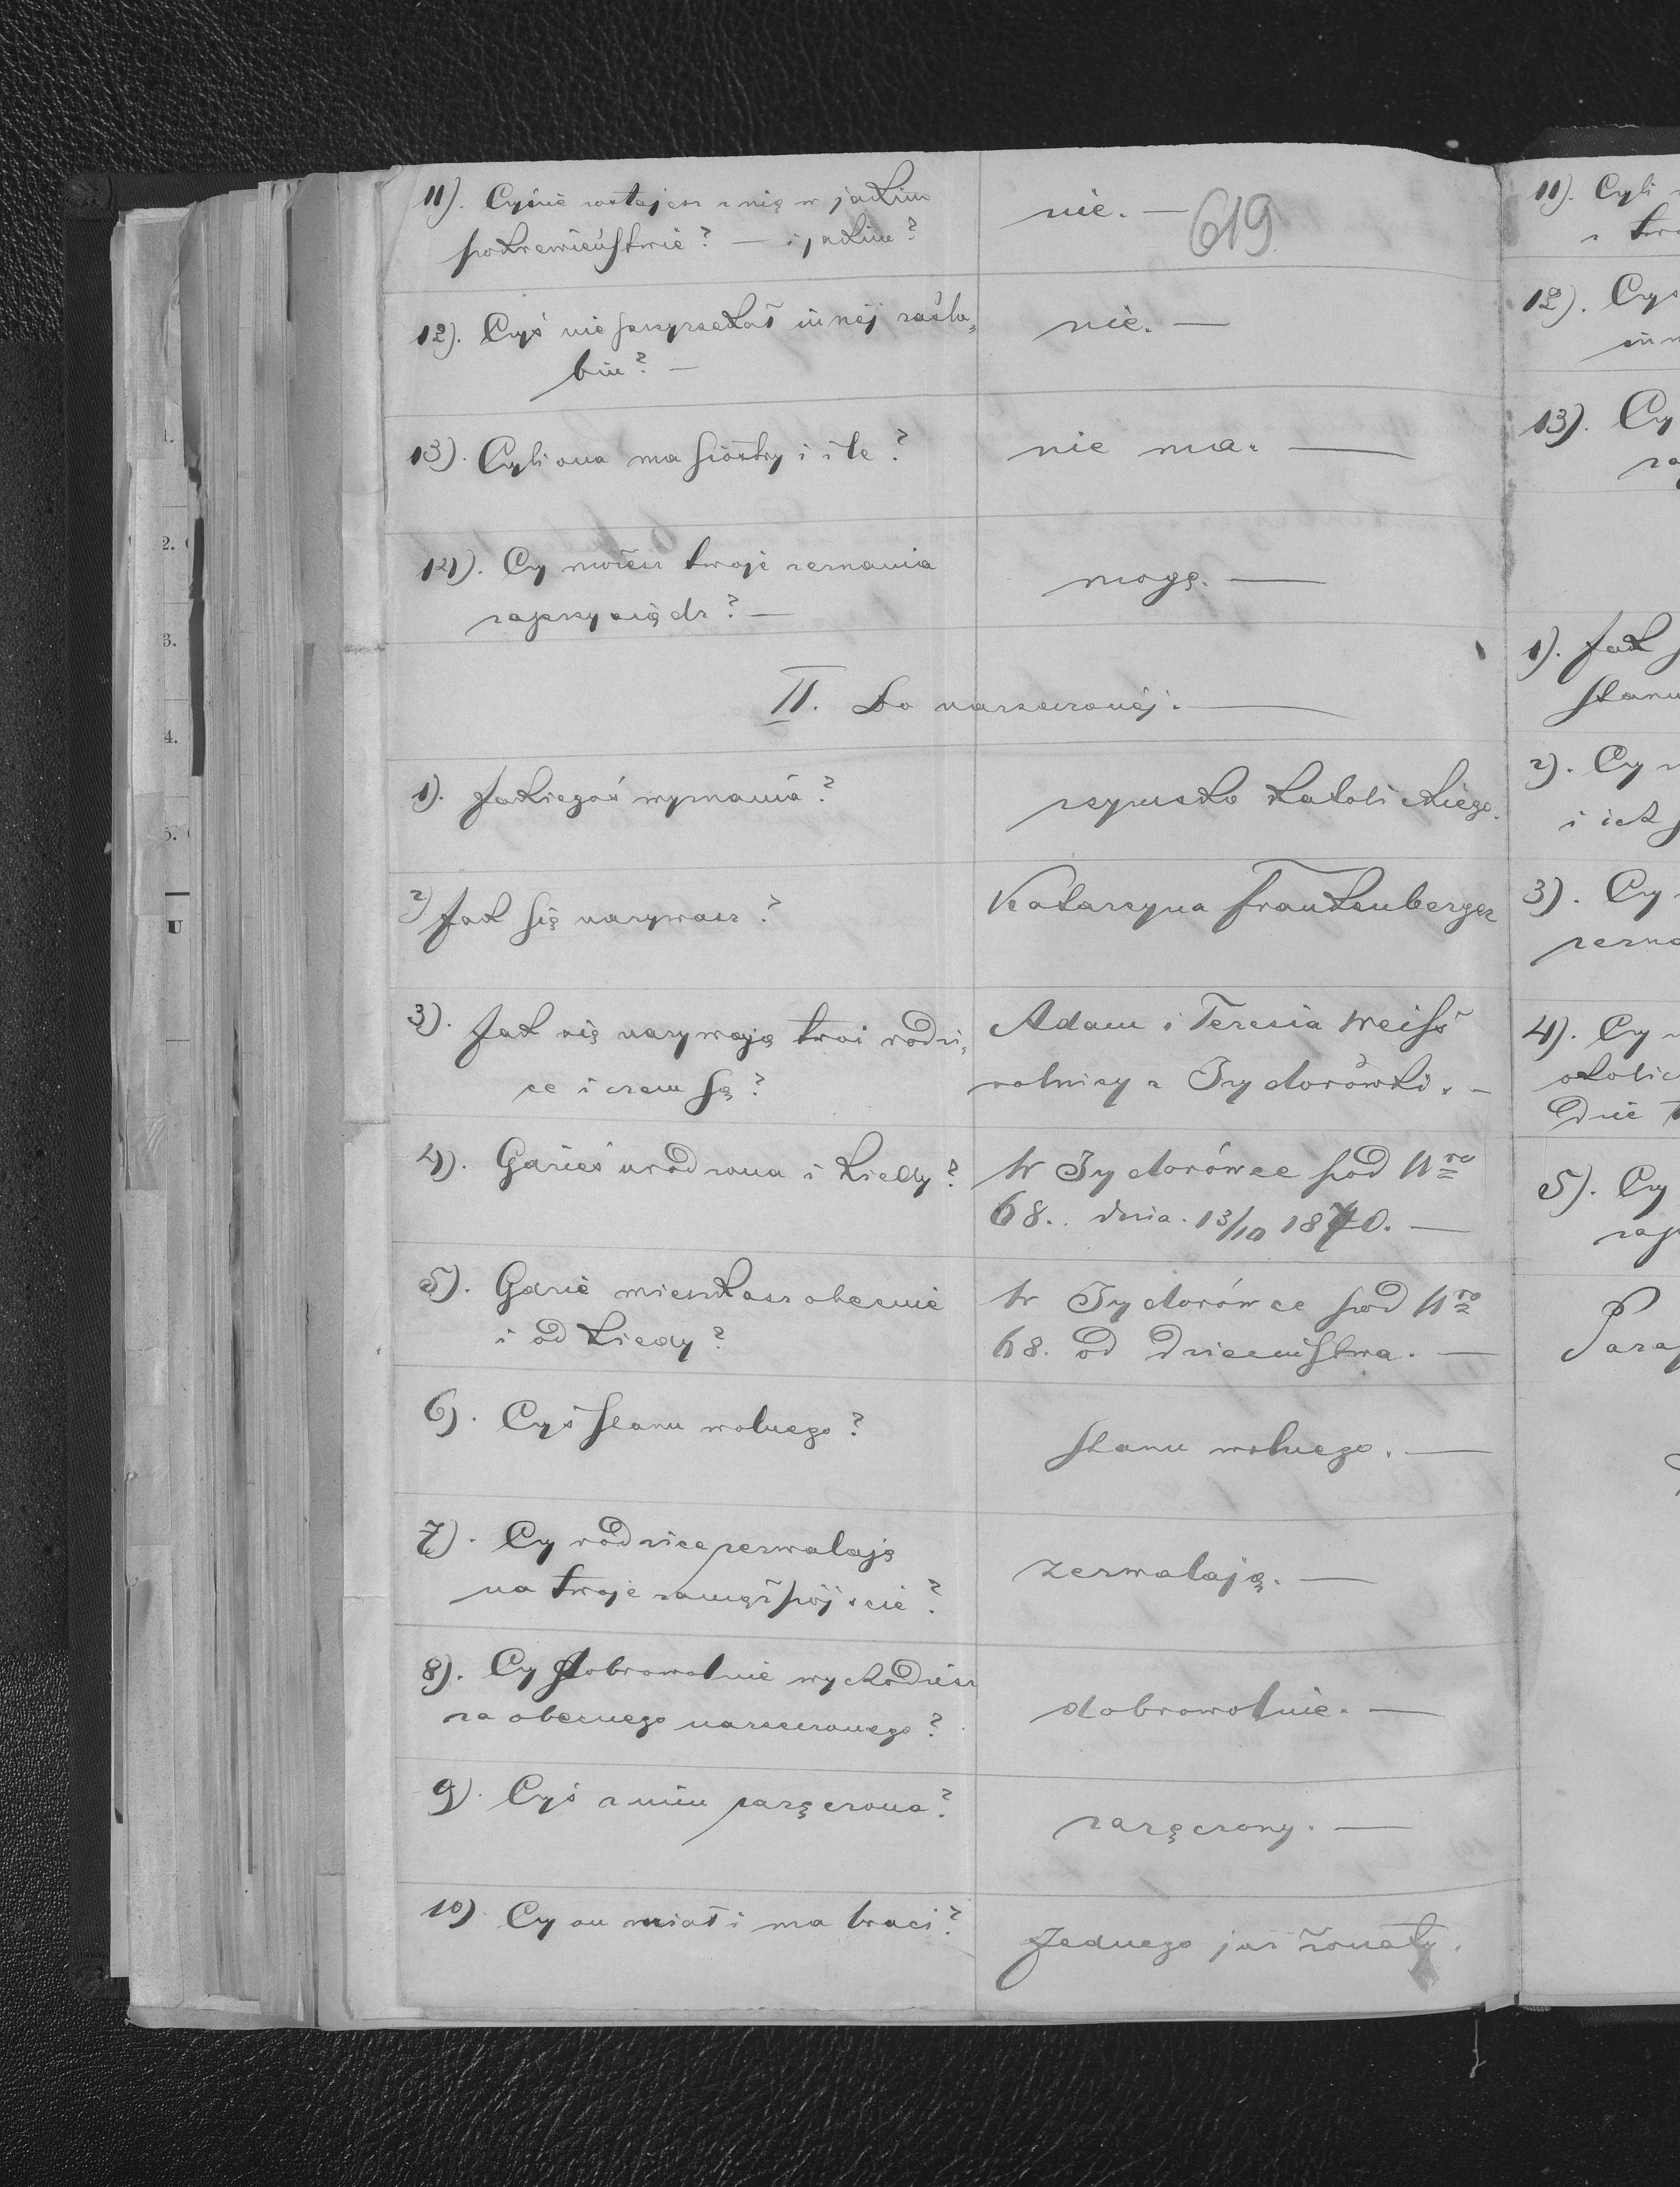 11). Czyś nie zostajesz z nią w jakim
pokrewieństwie? — i jakim?
nie. —
619.
12). Czyś nie przyrzekał innej zaślu„
biń? —
nie. —
13). Czyli ona ma siostry i ile?
nie ma. —
14). Czy możesz twoje zeznania
zaprzysiądz? —
mogę. —
II. Do narzeczonéj. —
1). Jakiegoś wyznania?
rzymsko katolickiego.
2) Jak się nazywasz?
Katarzyna Frankenberger
3). Jak się nazywają twoi rodzi„
ce i czem są?
Adam i Teresia Weiss
rolnicy z Izydorówki. —
4). Gdzieś urodzona i kiedy?
W Izydorówce pod Nro
68. dnia 13/10 1870. —
5). Gdzie mieszkasz obecnie
i od kiedy?
W Izydorówce pod Nro
68. od dzieciństwa. —
6). Czyś stanu wolnego?
stanu wolnego. —
7). Czy rodzice zezwalają
na twoje zamęż pójście?
zezwalają. —
8). Czy dobrowolnie wychodzisz
za obecnego narzeczonego?
dobrowolnie. —
9). Czyś z nim zaręczona?
zaręczony. —
10) Czy on miał i ma braci?
Jednego już żonaty.
11). Czyli
12). Czyś
13). Czy
1). Jak
stanu
2). Czy
i ich
3). Czy
4). Czy
5). Czy
1.
2.
3.
4.
5.
U